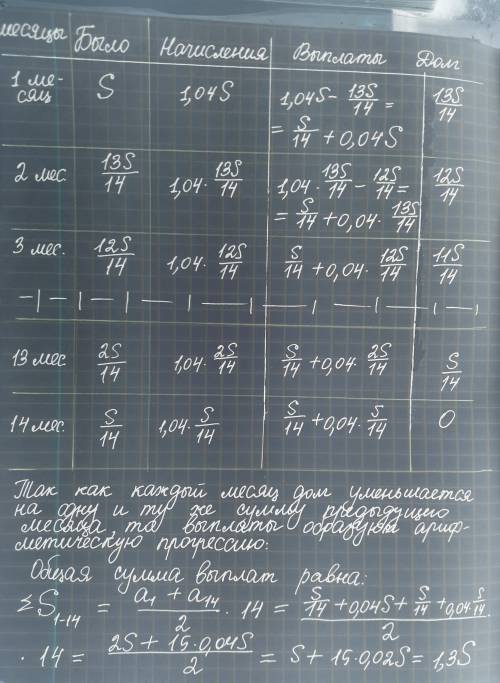 месяцы Было Начисления Выплаты Долг
1 ме-
сяц S 1,04S 1,04S - 13S/14 = 13S/14
= S/14 + 0,04S
2 мес. 13S/14 1,04 · 13S/14 1,04 · 13S/14 - 12S/14 = 12S/14
= S/14 + 0,04 · 13S/14
3 мес. 12S/14 1,04 · 12S/14 S/14 + 0,04 · 12S/14 11S/14
13 мес 2S/14 1,04 · 2S/14 S/14 + 0,04 · 2S/14 S/14
14 мес. S/14 1,04 · S/14 S/14 + 0,04 · S/14 0
Так как каждый месяц долг уменьшается
на одну и ту же сумму предыдущего
месяца, то выплаты образуют ариф-
метическую прогрессию:
Общая сумма выплат равна:
ΣS₁₋₁₄ = (a₁ + a₁₄)/2 · 14 = (S/14 + 0,04S + S/14 + 0,04 · S/14)/2
· 14 = (2S + 15·0,04S)/2 = S + 15·0,02S = 1,3S